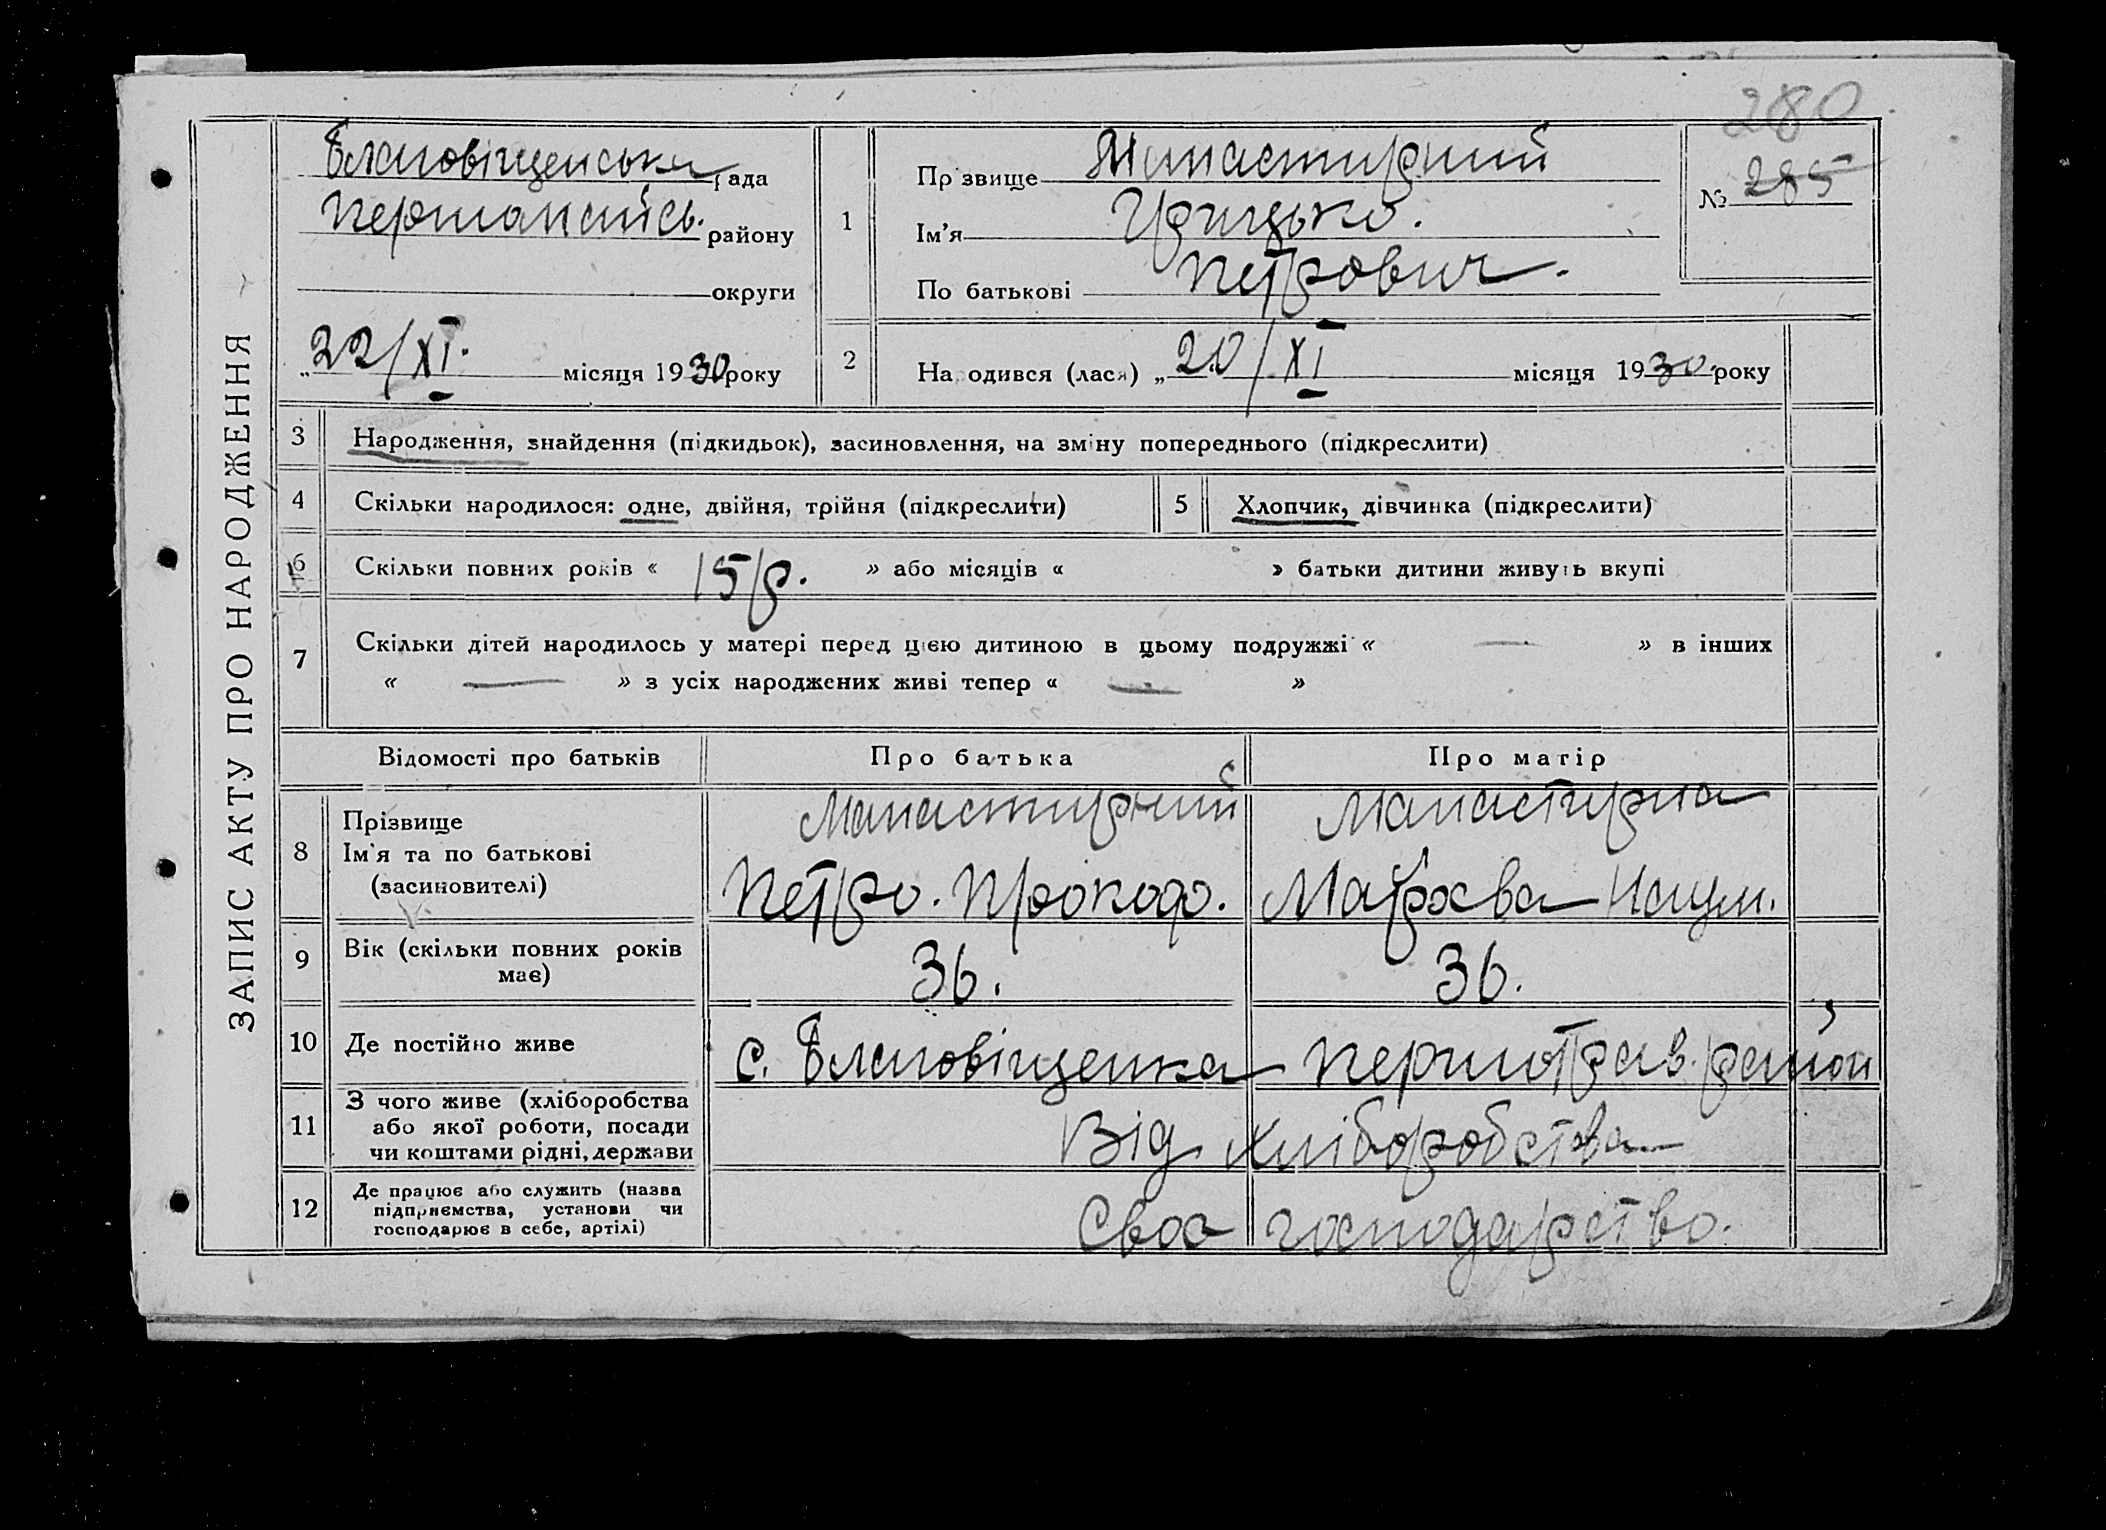 280
ЗАПИС АКТУ ПРО НАРОДЖЕННЯ
Благовіщенська рада
району
округи
„22/XI. місяця 1930 року
1
Прізвище Манастирний
Ім'я Грицько.
По батькові Петрович.
№ 285
2
Народився (лася) „20/XI місяця 1930. року
3 Народження, знайдення (підкидьок), засиновлення, на зміну попереднього (підкреслити)
4 Скільки народилося: одне, двійня, трійня (підкреслити) 5 Хлопчик, дівчинка (підкреслити)
6 Скільки повних років « 15 р. » або місяців « » батьки дитини живуть вкупі
7 Скільки дітей народилось у матері перед цією дитиною в цьому подружжі « — » в інших
« — » з усіх народжених живі тепер « — »
Відомості про батьків Про батька Про матір
8 Прізвище
Ім'я та по батькові
(засиновителі)
Манастирний
Петро. Прокоф.
Манастирна
Наум.
9 Вік (скільки повних років
має)
36. 36.
10 Де постійно живе с. Благовіщенка Першотрав. район
11 З чого живе (хліборобства
або якої роботи, посади
чи коштами рідні, держави
Від хліборобства
12 Де працює або служить (назва
підприємства, установи чи
господарює в себе, артілі)
Своє господарство.